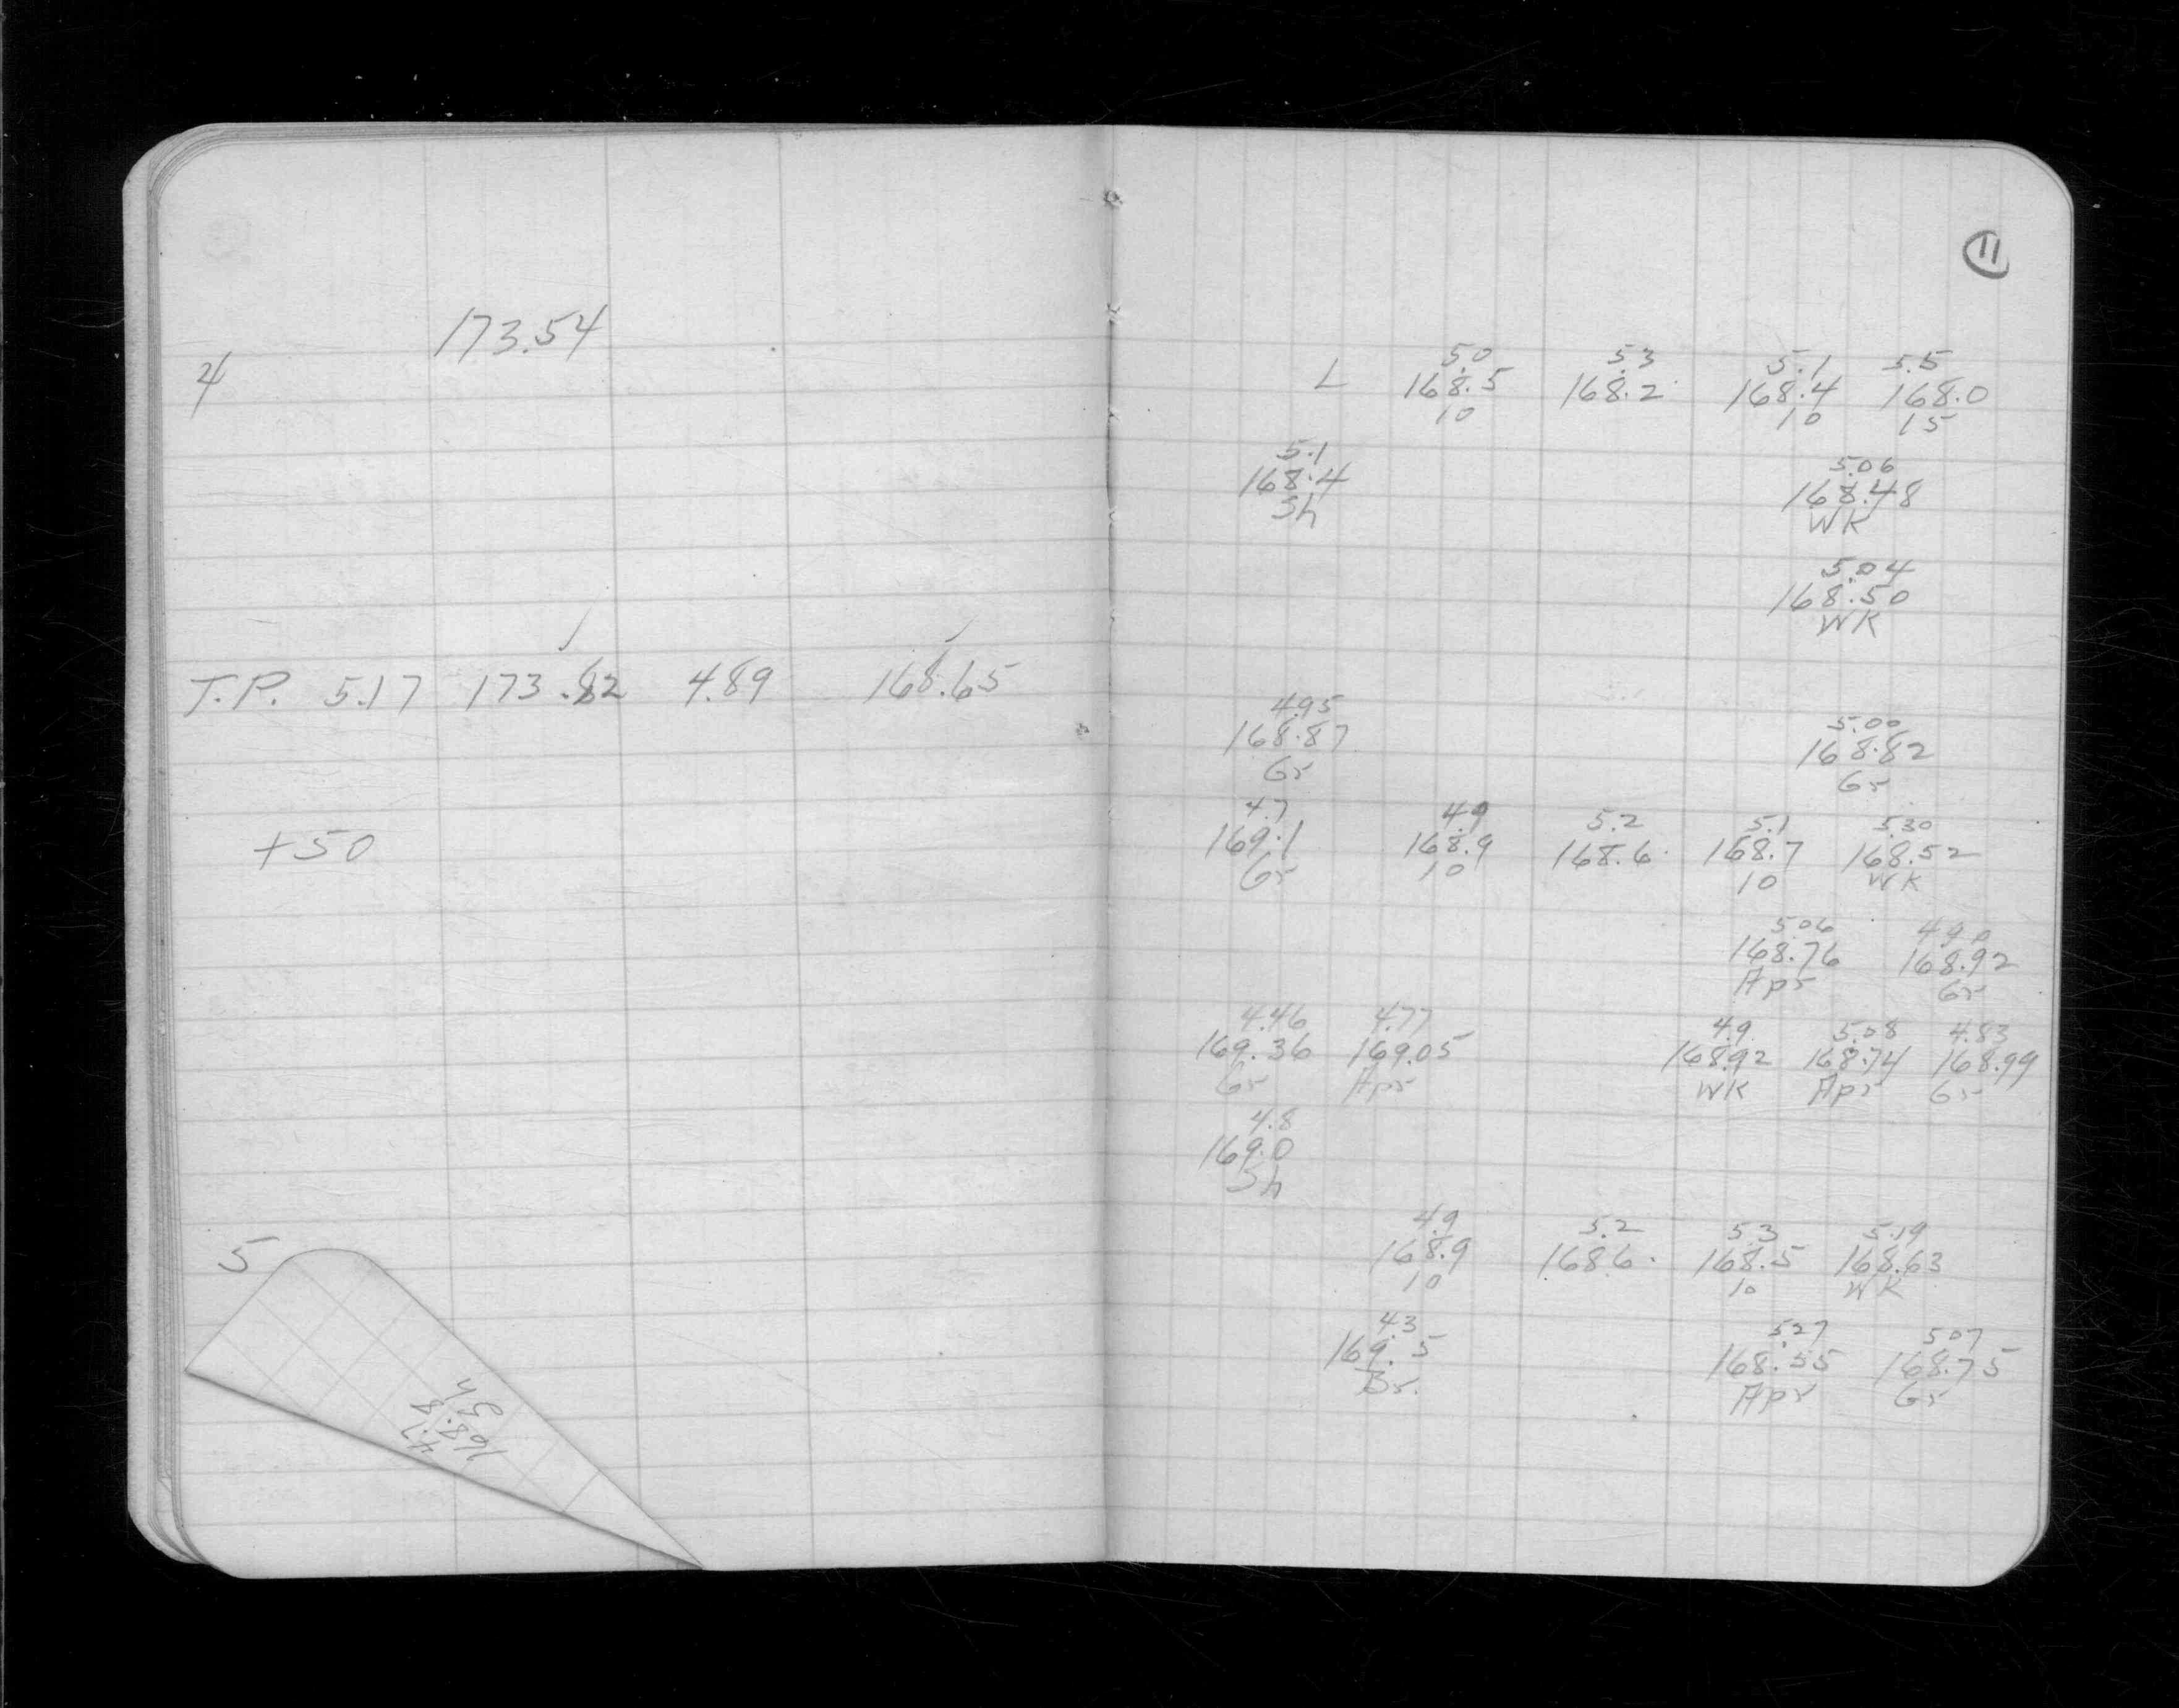 11
173.54
4
L 5.0 5.3 5.1 5.5
168.5 168.2 168.4 168.0
10 10 15
5.1 5.06
168.4 168.48
Sh WK
5.04
168.50
WK
T.P. 5.17 173.82 4.89 168.65
4.95 5.00
168.87 168.82
Gr Gr
+50
4.7 4.9 5.2 5.1 5.30
169.1 168.9 168.6 168.7 168.52
Gr 10 10 WK
5.06 4.90
168.76 168.92
Apr Gr
4.46 4.77 4.9 5.08 4.83
169.36 169.05 168.92 168.74 168.99
Gr Apr WK Apr Gr
4.8
169.0
Sh
5
4.9 5.2 5.3 5.19
168.9 168.6 168.5 168.63
10 10 WK
4.3 5.27 5.07
169.5 168.55 168.75
Br. Apr Gr
168.8
Sh